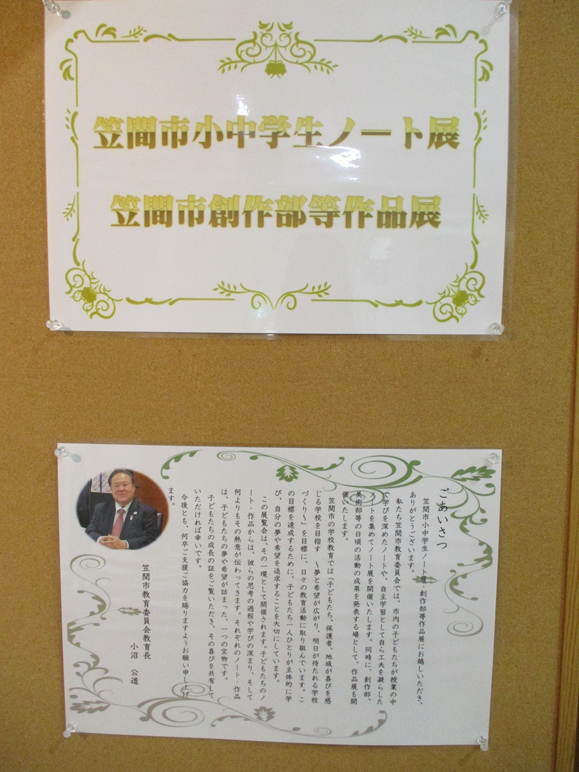 笠間市小中学生ノート展
笠間市創作部等作品展
ごあいさつ
笠間市小中学生ノート展・創作部等作品展にお越しいただき、
ありがとうございます。
私たち笠間市教育委員会では、市内の子どもたちが授業の中
で学びを深めたノートや、自主学習として自ら工夫を凝らした
ノートを集めてノート展を開催いたします。同時に、創作部、
美術部等の日頃の活動の成果を発表する場として、作品展も開
催いたします。
笠間市の学校教育では「子どもたち、保護者、地域が喜びを感
じる学校を目指す　～夢と希望が広がり、明日が待たれる学校
づくり～」を目標に、日々の教育活動に取り組んでいます。こ
の目標を達成するために、子どもたち一人ひとりが主体的に学
び、自分の夢や希望を追求することを大切にしています。
この展覧会は、その一環として開催されます。子どもたちのノ
ート、作品からは、彼らの思考の過程や学びの深まり、そして
何よりもその熱意が伝わってきます。それぞれのノート、作品
は、子どもたちの夢や希望が詰まった、一つの宝物です。
子どもたちの成長の証をご覧いただき、その喜びを共有して
いただければ幸いです。
今後とも、何卒ご支援ご協力を賜りますようお願い申し上げ
ます。
笠間市教育委員会教育長
小沼　公道